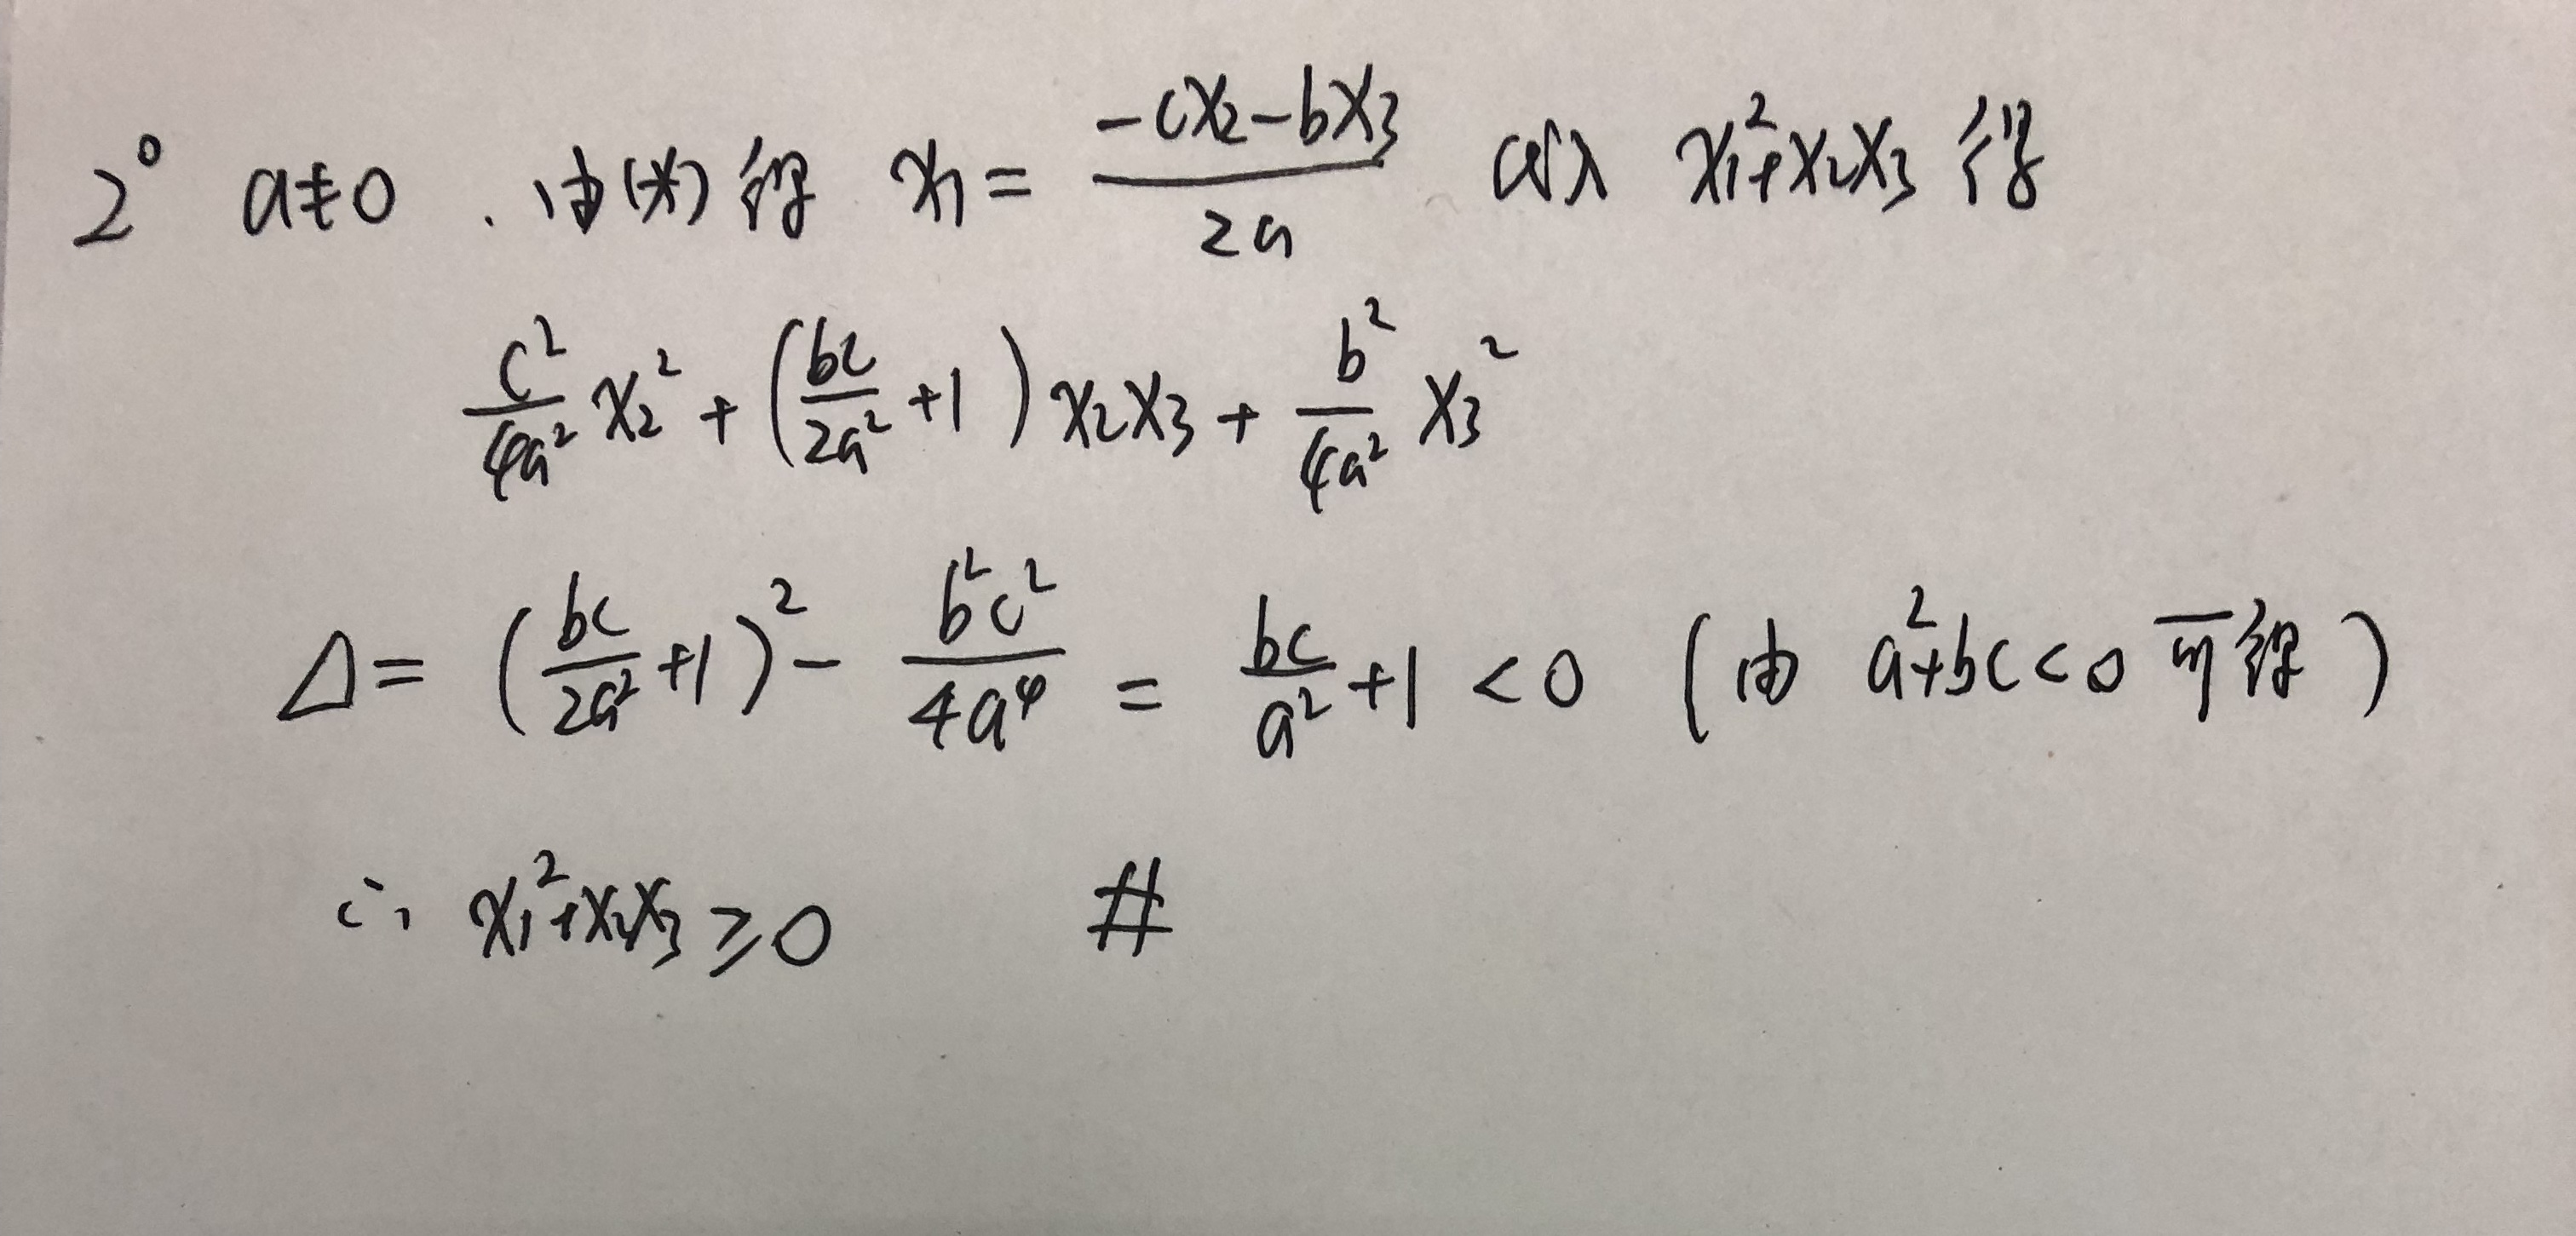 2° a≠0 . 由(*)得 x₁ = (-cx₂-bx₃)/(2a) 代入 x₁²+x₂x₃ 得
c²/(4a²) x₂² + (bc/(2a²) +1) x₂x₃ + b²/(4a²) x₃²
Δ = (bc/(2a²) +1)² - b²c²/(4a⁴) = bc/a² +1 < 0 (由 a²+bc<0 可得)
∴ x₁²+x₂x₃ ≥ 0 #